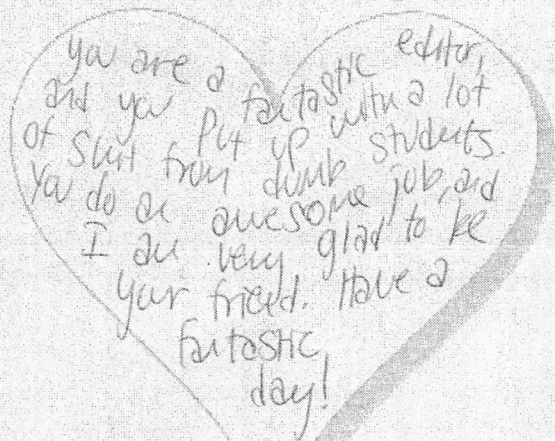 you are a fantastic editor,
and you put up with a lot
of shit from dumb students.
You do an awesome job, and
I am very glad to be
your friend. Have a
fantastic
day!